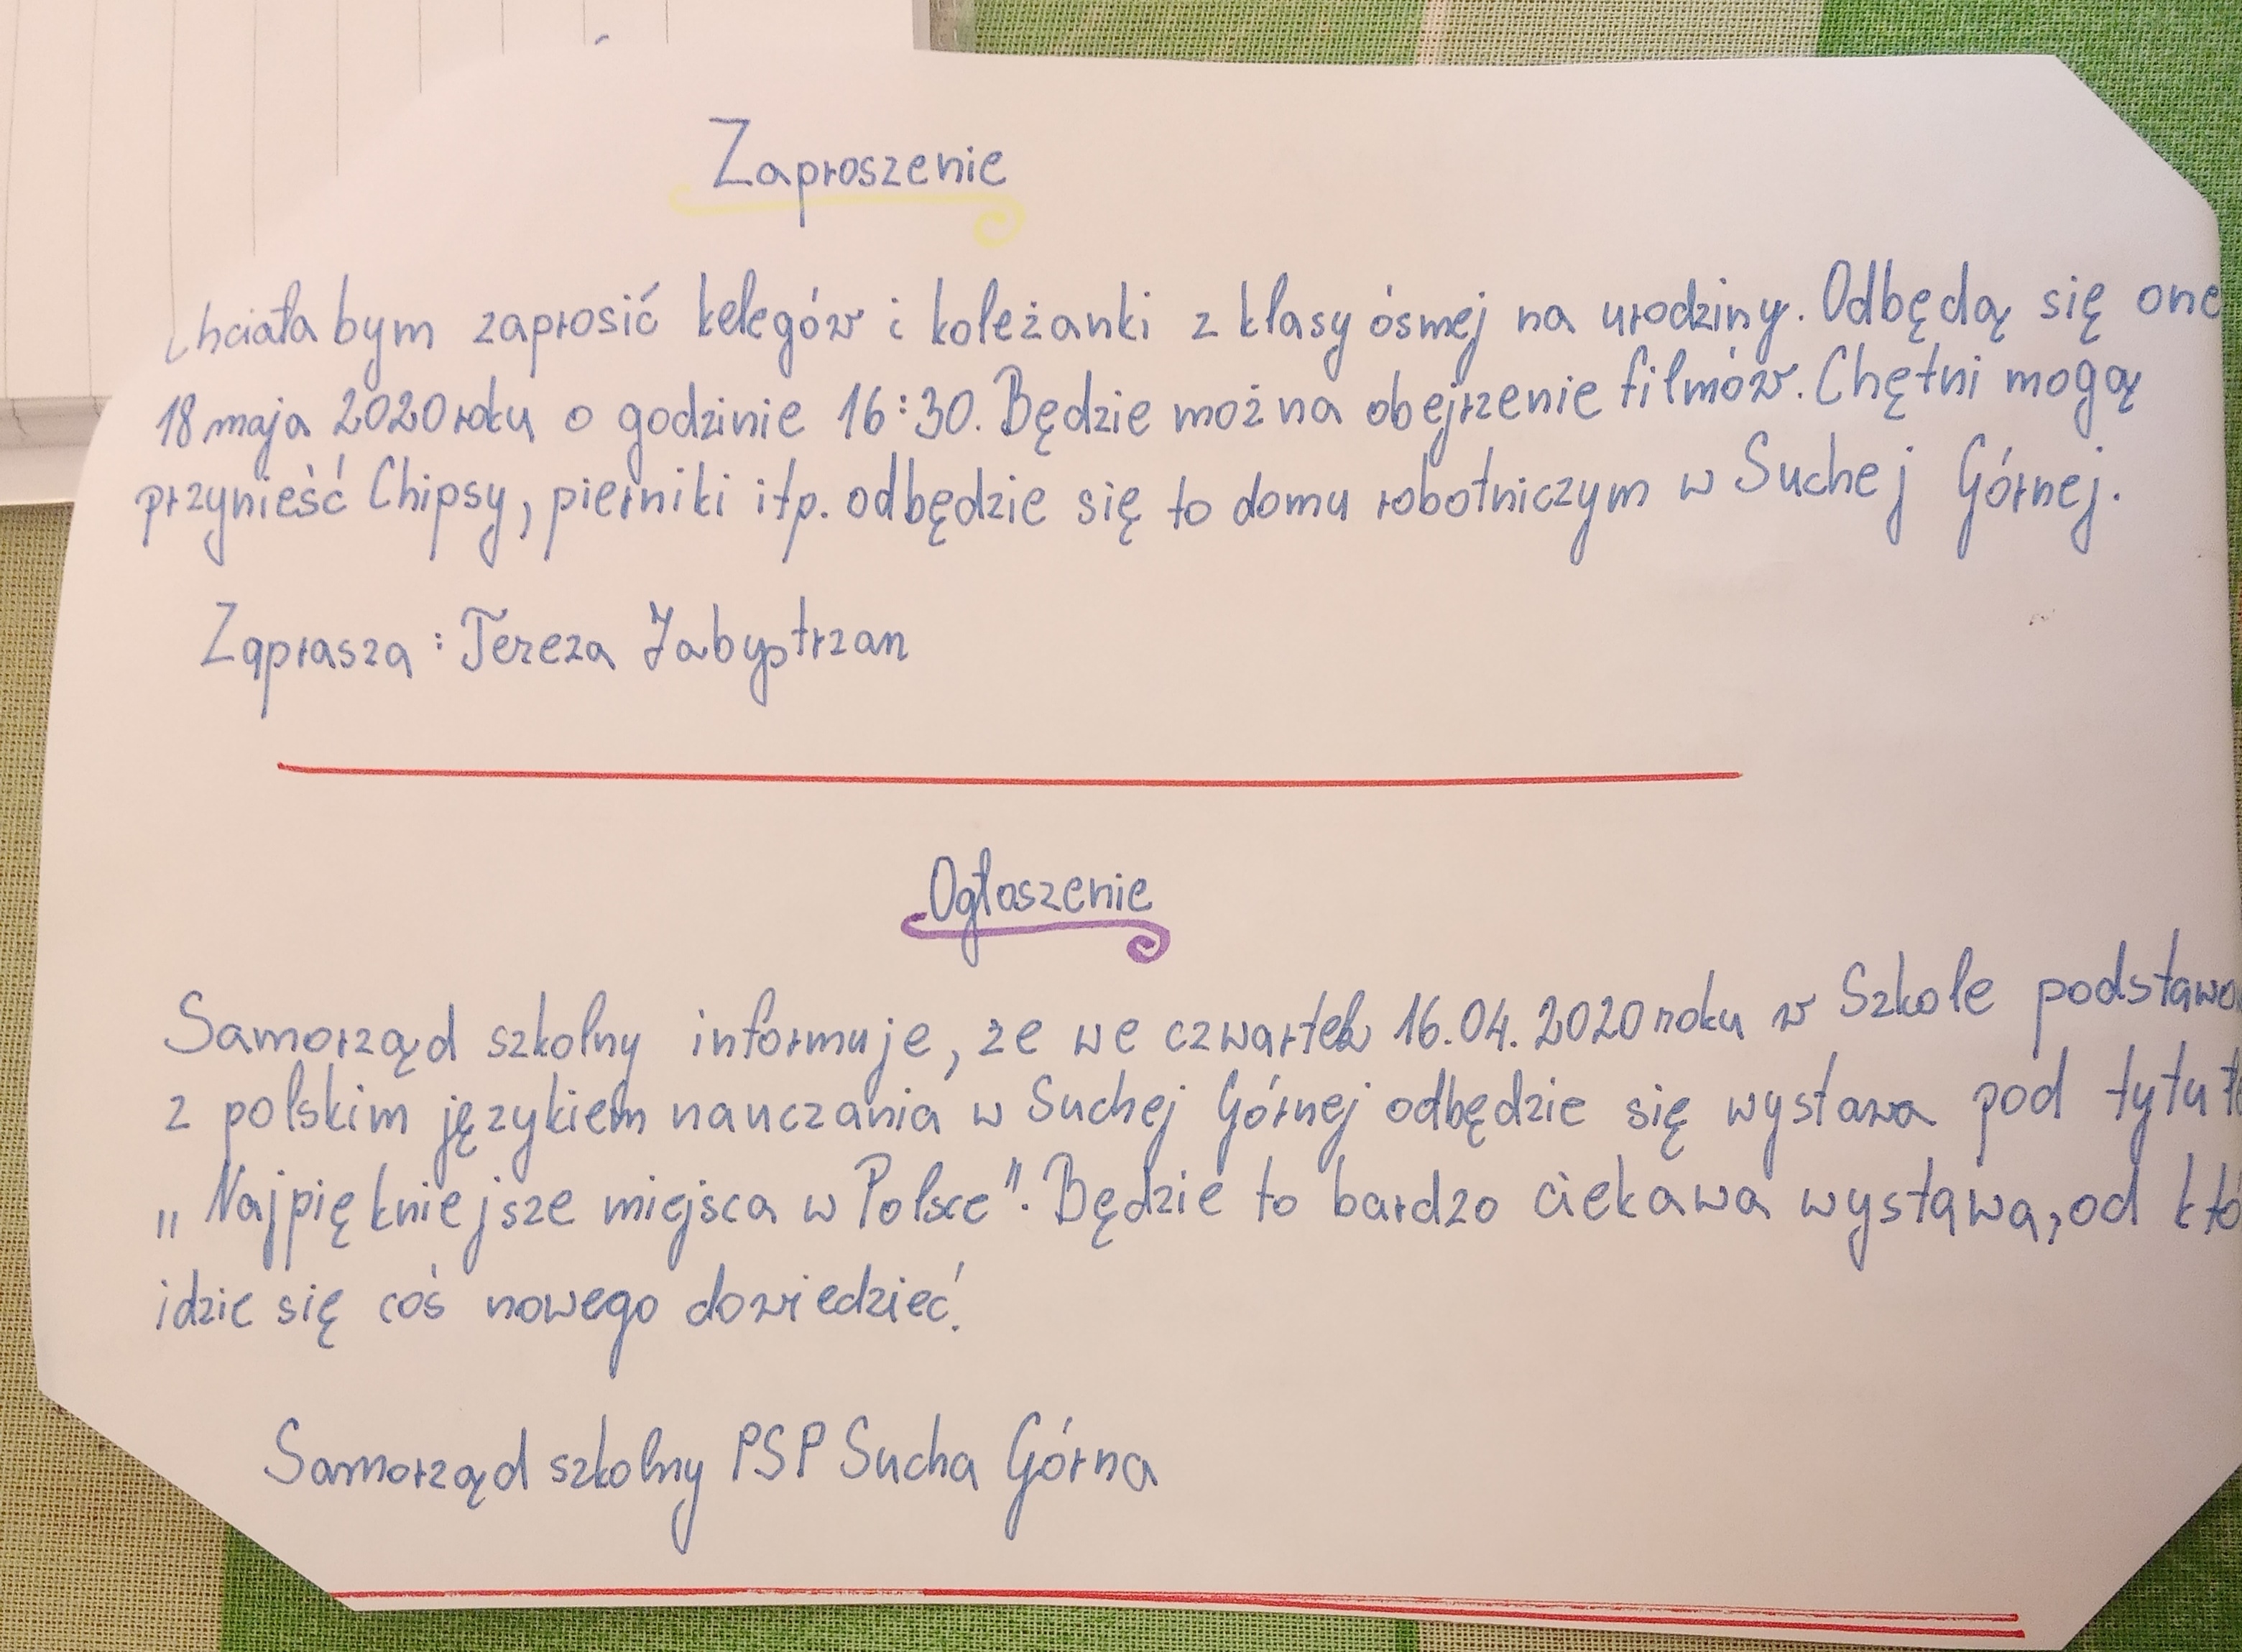 Zaproszenie
chciałabym zaprosić kelegów i koleżanki z klasy ósmej na urodziny. Odbędą się one
18 maja 2020 roku o godzinie 16:30. Będzie można obejrzenie filmów. Chętni mogą
przynieść Chipsy, pierniki itp. odbędzie się to domu robotniczym w Suchej Górnej.
Zaprasza: Tereza Zabystrzan
Ogłoszenie
Samorząd szkolny informuje, że we czwartek 16.04.2020 roku w Szkole podstawo
z polskim językiem nauczania w Suchej Górnej odbędzie się wystawa pod tytuł
„Najpiękniejsze miejsca w Polsce". Będzie to bardzo ciekawa wystawa, od któ
idzie się coś nowego dowiedzieć.
Samorząd szkolny PSP Sucha Górna